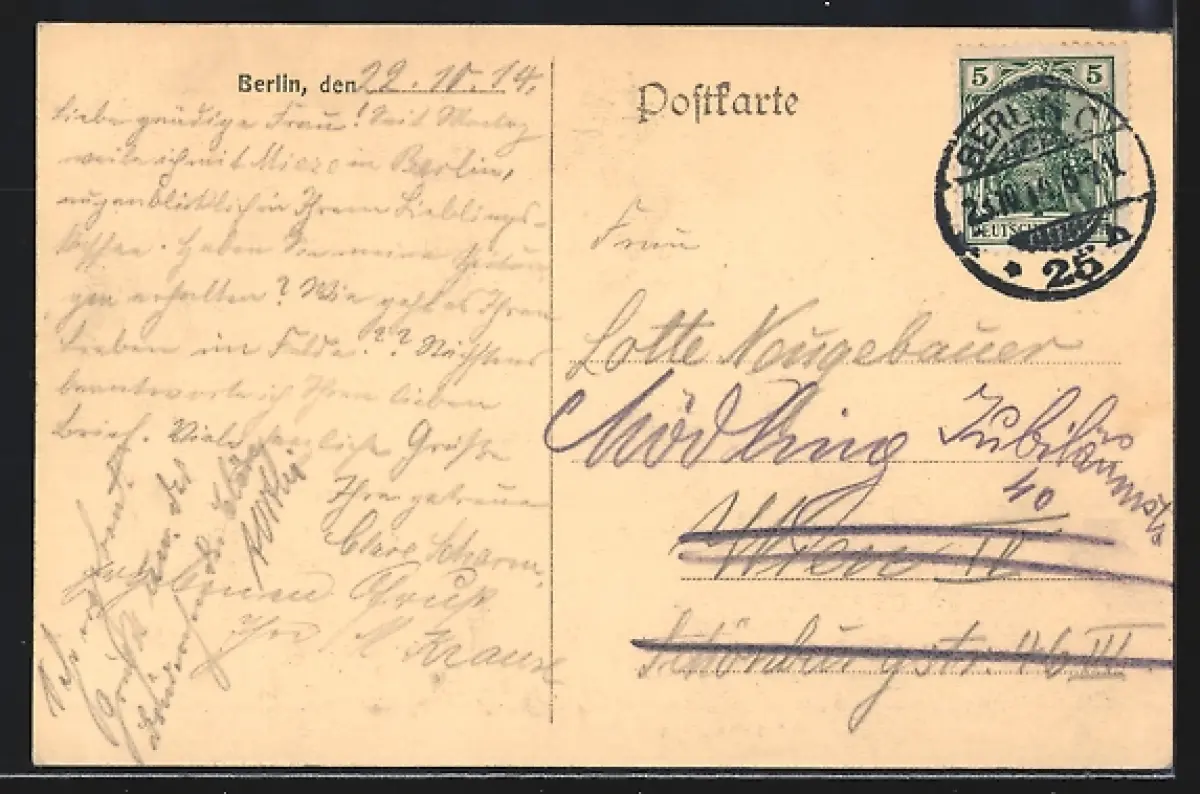 Berlin, den 22.10.14.
Liebe gnädige Frau! Seit Montag
weile ich mit Mieze in Berlin,
augenblicklich in Ihrem Lieblings-
Kaffee. Haben Sie meine Zeitun
gen erhalten? Wie geht es Ihren
Lieben im Felde?? Nächstens
beantworte ich Ihren lieben
Brief. Viele herzliche Grüße
Ihre getreue
Cläre Scharm.
Gruß
Ihre M. Krause
Postkarte
5 5
DEUTSCHES REICH
BERLIN C
23.10.14. 6-7 N
* 25 b
Frau
Lotte Neugebauer
Mödling Jubiläumsstr
40
Wien IV
Schönburgstr. 46 III